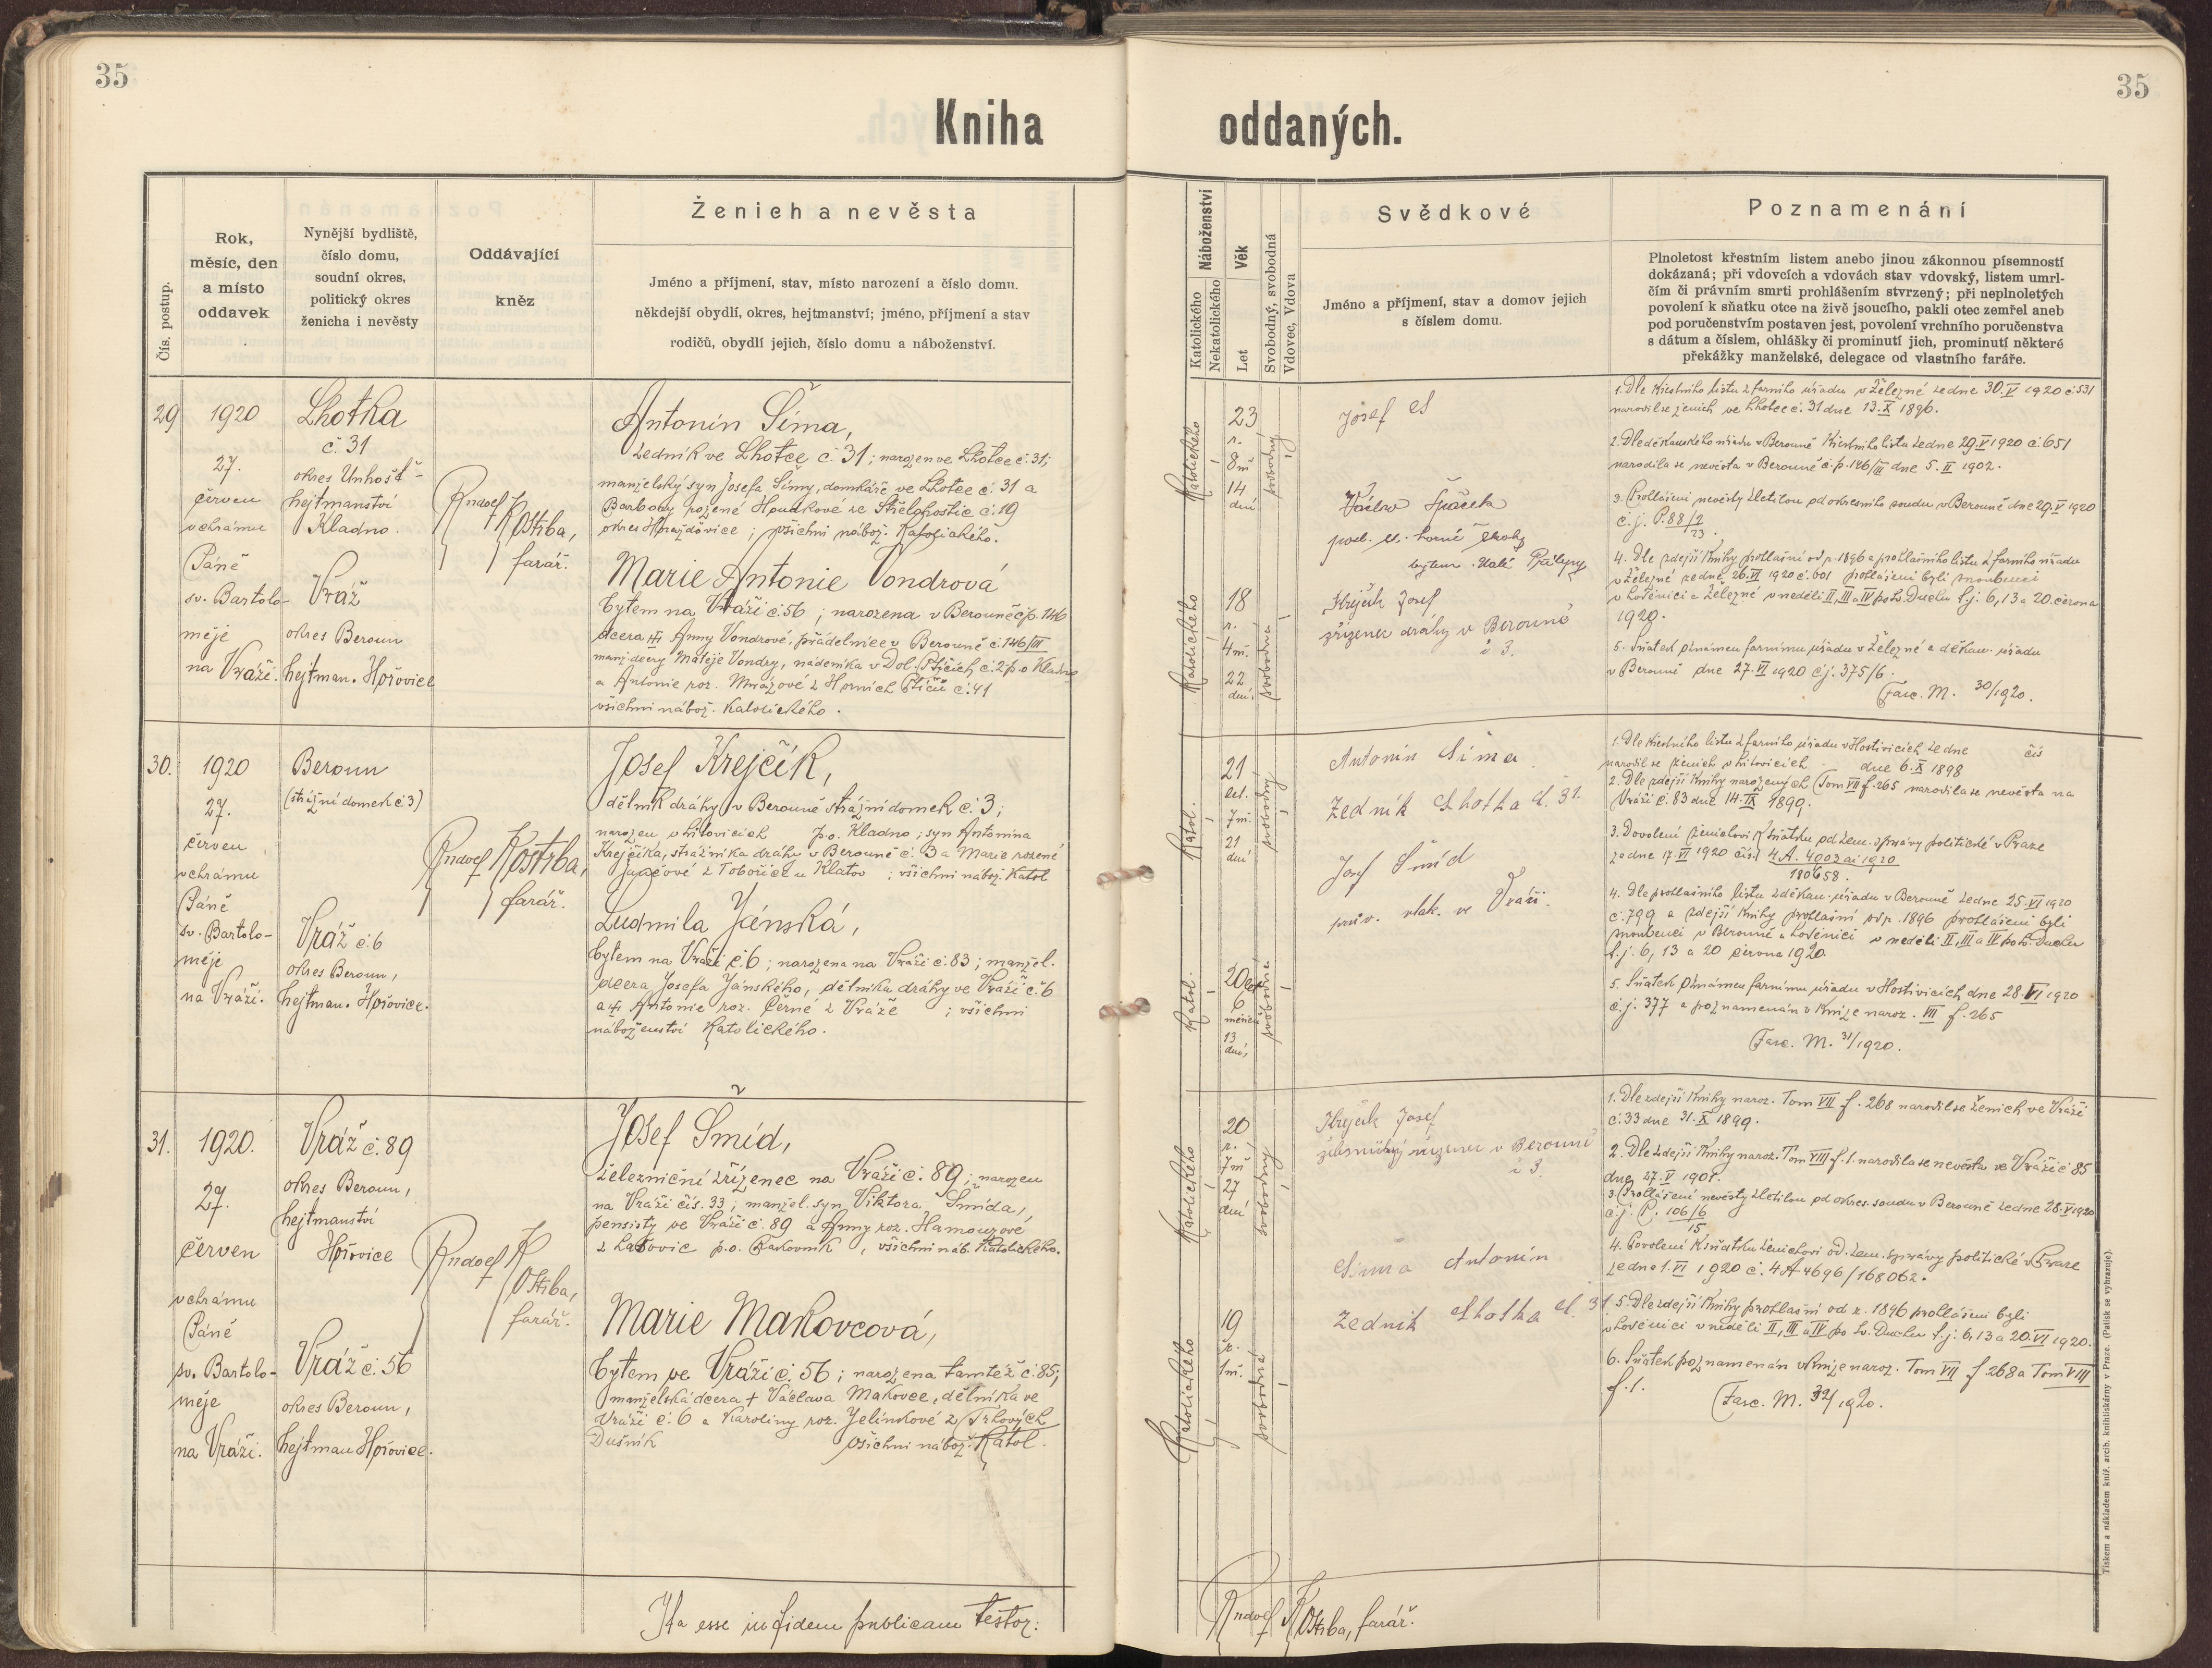 35
35
Kniha oddaných.
Čís. postup.
Rok,
měsíc, den
a místo
oddavek
Nynější bydliště,
číslo domu,
soudní okres,
politický okres
ženicha i nevěsty
Oddávající
kněz
Ženich a nevěsta
Jméno a příjmení, stav, místo narození a číslo domu.
někdejší obydlí, okres, hejtmanství; jméno, příjmení a stav
rodičů, obydlí jejich, číslo domu a náboženství.
Náboženství
Katolického
Nekatolického
Věk
Let
Svobodný, svobodná
Vdovec, Vdova
Svědkové
Jméno a příjmení, stav a domov jejich
s číslem domu.
Poznamenání
Plnoletost křestním listem anebo jinou zákonnou písemností
dokázaná; při vdovcích a vdovách stav vdovský, listem umrl-
čím či právním smrti prohlášením stvrzený; při neplnoletých
povolení k sňatku otce na živě jsoucího, pakli otec zemřel aneb
pod poručenstvím postaven jest, povolení vrchního poručenstva
s dátum a číslem, ohlášky či prominutí jich, prominutí některé
překážky manželské, delegace od vlastního faráře.
29
1920
27.
červen
v chrámu
Páně
sv. Bartolo-
měje
na Vráži.
Lhotka
č. 31
okres Unhošť
hejtmanství
Kladno.
Vráž
okres Beroun
hejtman. Hořovice
Rudolf Kostrba,
farář.
Antonín Šíma,
zedník ve Lhotce č. 31; narozen ve Lhotce č. 31;
manželský syn Josefa Šímy, domkáře ve Lhotce č. 31 a
Barbory rozené ve Střelohostic č. 19
okres Horažďovice; všichni nábož. Katolického.
Marie Antonie Vondrová
bytem na Vráži č. 56; narozena v Berouně čp. 146
dcera Anny Vondrové, přádelnice v Berouně č. 146/III
manž. dcery Matěje Vondry, nádeníka v Dol. č. 2 p. o. Kladno
a Antonie roz. Mrázové z Horních č. 41
všichni nábož. Katolického.
Katolického
23
r.
8 m
14
dní
svobodný
Katolického
18
r.
4 m.
22
dní
svobodná
Josef
Václav Špaček
Krejčík Josef
zřízenec dráhy v Berouně
č 3.
1. Dle křestního listu z farního úřadu v Železné ze dne 30. V 1920 č. 531
narodil se ženich ve Lhotce č. 31 dne 13. X 1896.
2. Dle děkanského úřadu v Berouně křestního listu ze dne 29. V 1920 č. 651
narodila se nevěsta v Berouně č. p. 146/III dne 5. II 1902.
3. Prohlášení nevěsty zletilou od okresního soudu v Berouně dne 29. V 1920
č. j. P. 88/2
23.
4. Dle zdejší knihy prohlašní od r. 1896 a prohlašního listu z farního úřadu
v Železné ze dne 26. VI 1920 prohlášeni byli snoubenci
v Loděnici a Železné v neděli II, III a IV po sv. Duchu t. j. 6, 13 a 20. června
1920.
5. Sňatek oznámen farnímu úřadu v Železné a děkan. úřadu
v Berouně dne 27. VI 1920 čj. 375/6.
Fasc. M. 30/1920.
30.
1920
27.
červen
v chrámu
Páně
sv. Bartolo-
měje
na Vráži.
Beroun
(strážní domek č 3)
Vráž č. 6
okres Beroun,
hejtman. Hořovice.
Rudolf Kostrba,
farář.
Josef Krejčík,
dělník dráhy v Berouně strážní domek č. 3;
narozen v Litovicích p. o. Kladno; syn Antonína
Krejčíka, strážníka dráhy v Berouně č. 3 a Marie rozené
u Klatov; všichni nábož. Katol
Ludmila Jánská,
bytem na Vráži č. 6; narozena na Vráži č. 83; manžel.
dcera Josefa Jánského, dělníka dráhy ve Vráži č 6
a Antonie roz. Černé z Vráže; všichni
náboženství Katolického.
Katol.
21
let.
7 m.
21
dní
svobodný
Katol.
20 let
6
měsíců
13
dní
svobodná
Antonín Síma
Zedník Lhotka č. 31.
Josef Šmíd
ve Vráži.
1. Dle křestního listu z farního úřadu v Hostivicích ze dne čís
narodil se ženich v Litovicích dne 6. X 1898
2. Dle zdejší knihy narozených Tom VII f. 265 narodila se nevěsta na
Vráži č. 83 dne 14. IX 1899.
3. Dovolení ženichovi k sňatku od zem. správy politické v Praze
ze dne 17. VI 1920 čís. 4 A. 4003 ai 1920
180658.
4. Dle prohlašního listu z děkan. úřadu v Berouně ze dne 25. VI 1920
č. 799 a zdejší knihy prohlašní od r. 1896 prohlášeni byli
snoubenci v Berouně a Loděnici v neděli II, III a IV po sv. Duchu
t. j. 6, 13 a 20 června 1920.
5. Sňatek oznámen farnímu úřadu v Hostivicích dne 28. VI 1920
č. j. 377 a poznamenán v knize naroz. VII f. 265
Fasc. M. 31/1920.
31.
1920.
27.
červen
v chrámu
Páně
sv. Bartolo-
měje
na Vráži.
Vráž č. 89
okres Beroun,
hejtmanství
Hořovice
Vráž č. 56
okres Beroun,
hejtman Hořovice.
Rudolf Kostrba,
farář.
Josef Šmíd,
železniční zřízenec na Vráži č. 89; narozen
na Vráži čís. 33; manžel. syn Viktora Šmída,
pensisty ve Vráži č. 89 a Anny roz. Hamouzové
p. o. Rakovník, všichni náb. Katolického.
Marie Makovcová,
bytem ve Vráži č. 56; narozena tamtéž č. 85;
manželská dcera † Václava Makovce, dělníka ve
Vráži č. 6 a Karoliny roz. Jelínkové z Trhových
Dušník všichni nábož. Katol.
Katolického
20
r.
7 m
27
dní
svobodný
Katolického
19
r.
1 m.
svobodná
Krejčík Josef
v Berouně
č 3.
Síma Antonín
Zedník Lhotka č. 31
1. Dle zdejší knihy naroz. Tom VII f. 268 narodil se ženich ve Vráži
č. 33 dne 31. X 1899.
2. Dle zdejší knihy naroz. Tom VIII f. 1. narodila se nevěsta ve Vráži č 85
dne 27. V 1901.
3. Prohlášení nevěsty zletilou od okres. soudu v Berouně ze dne 28. V 1920
čj. P. 106/6
15
4. Povolení k sňatku ženichovi od zem. správy politické v Praze
ze dne 1. VI 1920 č. 4 A 4696/168062.
5. Dle zdejší knihy prohlašní od r. 1896 prohlášeni byli
v Loděnici v neděli II, III a IV po sv. Duchu t. j. 6, 13 a 20. VI 1920.
6. Sňatek poznamenán v knize naroz. Tom VII f 268 a Tom VIII
f. 1.
Fasc. M. 32/1920.
Ita esse in fidem publicam testor:
Rudolf Kostrba, farář.
Tiskem a nákladem kníž. arcib. knihtiskárny v Praze. (Patisk se vyhrazuje).